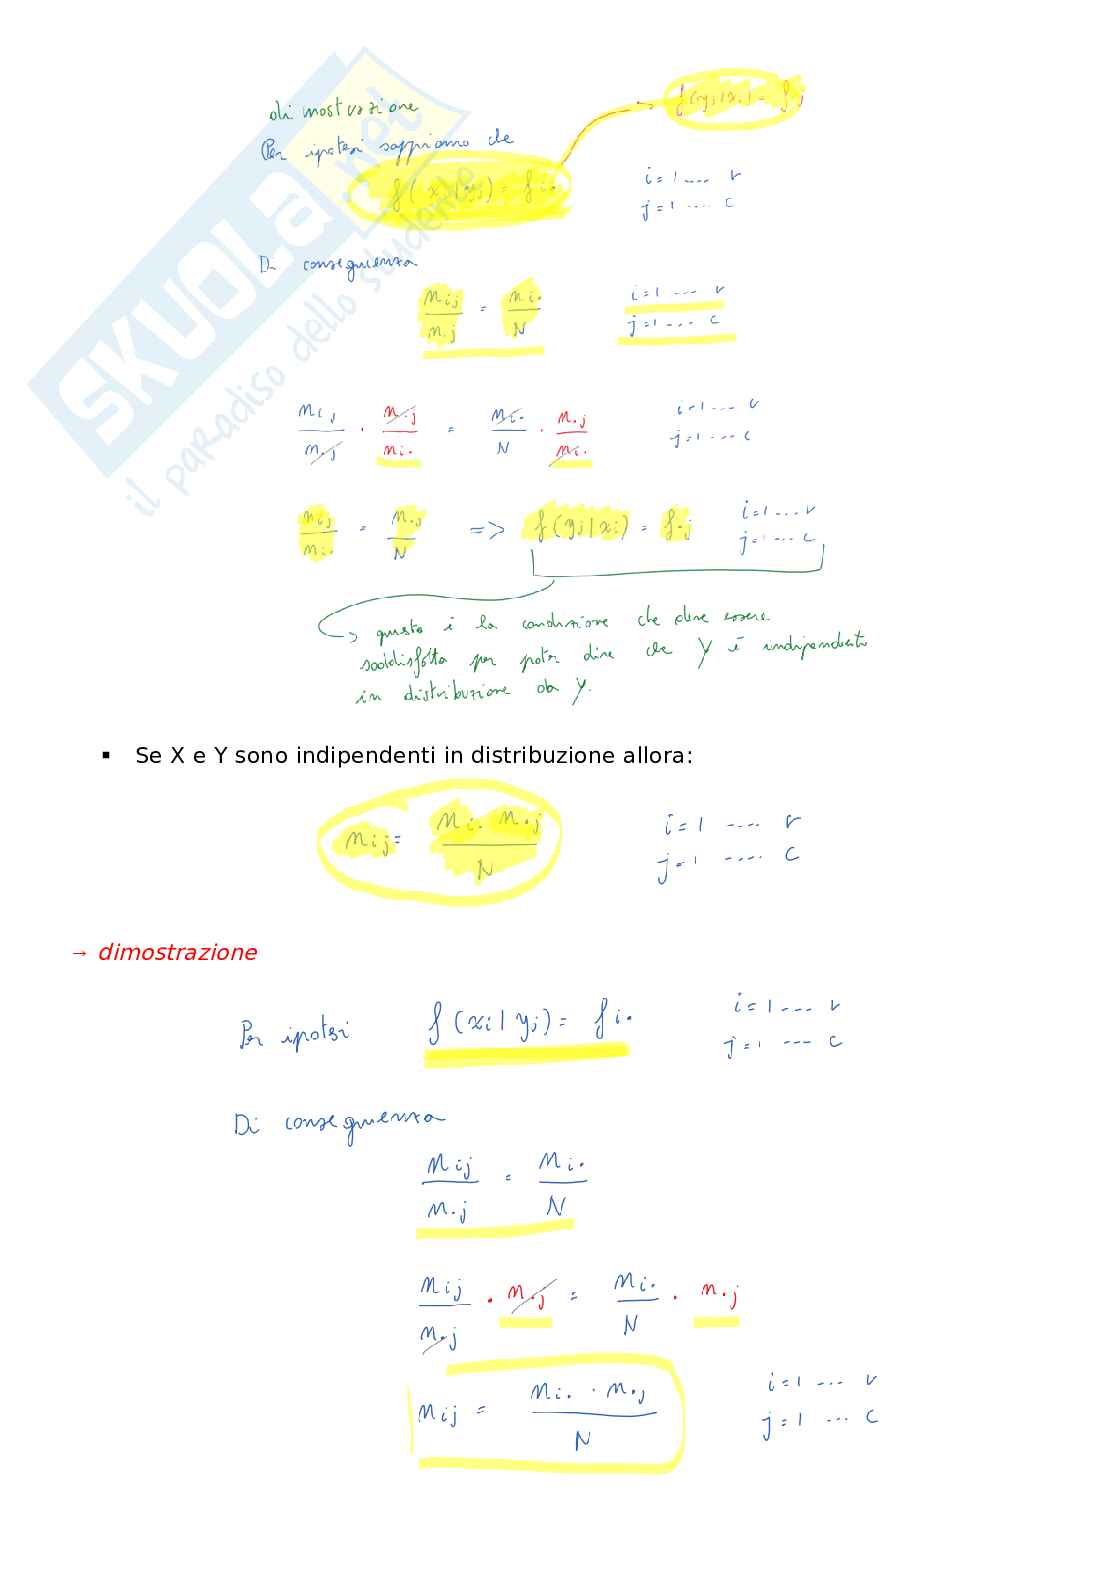 dimostrazione
f(yj|xi) = f.j
Per ipotesi sappiamo che
f(xi|yj) = fi.
i=1 .... r
j=1 .... c
Di conseguenza
nij/n.j = ni./N
i=1 ... r
j=1 ... c
nij/n.j · n.j/ni. = ni./N · n.j/ni.
i=1 ... r
j=1 ... c
nij/ni. = n.j/N => f(yj|xi) = f.j
i=1 ... r
j=1 ... c
questa è la condizione che deve essere
soddisfatta per poter dire che Y è indipendente
in distribuzione da Y.
▪ Se X e Y sono indipendenti in distribuzione allora:
nij = ni. n.j/N
i=1 .... r
j=1 .... c
→ dimostrazione
Per ipotesi f(xi|yj) = fi.
i=1 ... r
j=1 ... c
Di conseguenza
nij/n.j = ni./N
nij/n.j · n.j = ni./N · n.j
nij = ni. · n.j/N
i=1 ... r
j=1 ... c
SKUOLA.net
il paradiso dello studente